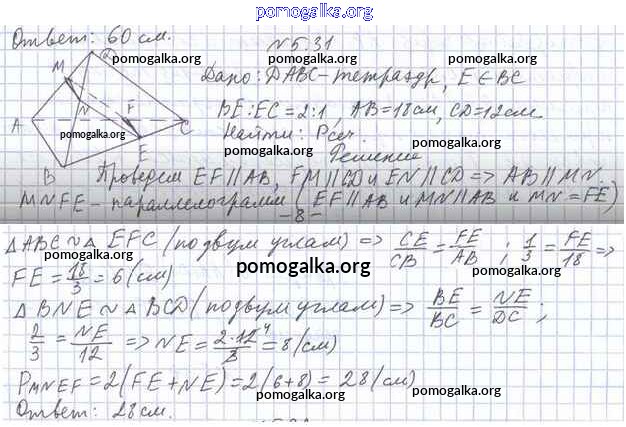 pomogalka.org
Ответ: 60 см.
N 5.31
pomogalka.org pomogalka.org pomogalka.org
D
M
Дано: DABC - тетраэдр, E ∈ BC
N F
BE:EC = 2:1, AB = 18 см, CD = 12 см.
A C
pomogalka.org
Найти: Pсеч.
pomogalka.org
E
Решение
B
Проведем EF || AB, FM || CD и EN || CD => AB || MN.
pomogalka.org pomogalka.org
MNFE - параллелограмм (EF || AB и MN || AB и MN = FE)
- 8 -
△ABC ~ △ EFC (по двум углам) => CE/CB = FE/AB ; 1/3 = FE/18 =>
pomogalka.org pomogalka.org pomogalka.org
FE = 18/3 = 6 (см)
△ BNE ~ △ BCD (по двум углам) => BE/BC = NE/DC ;
2/3 = NE/12 => NE = 2·12⁴/3 = 8 (см)
pomogalka.org pomogalka.org
P MNEF = 2(FE + NE) = 2(6+8) = 28 (см)
pomogalka.org pomogalka.org
Ответ: 28 см.
pomogalka.org